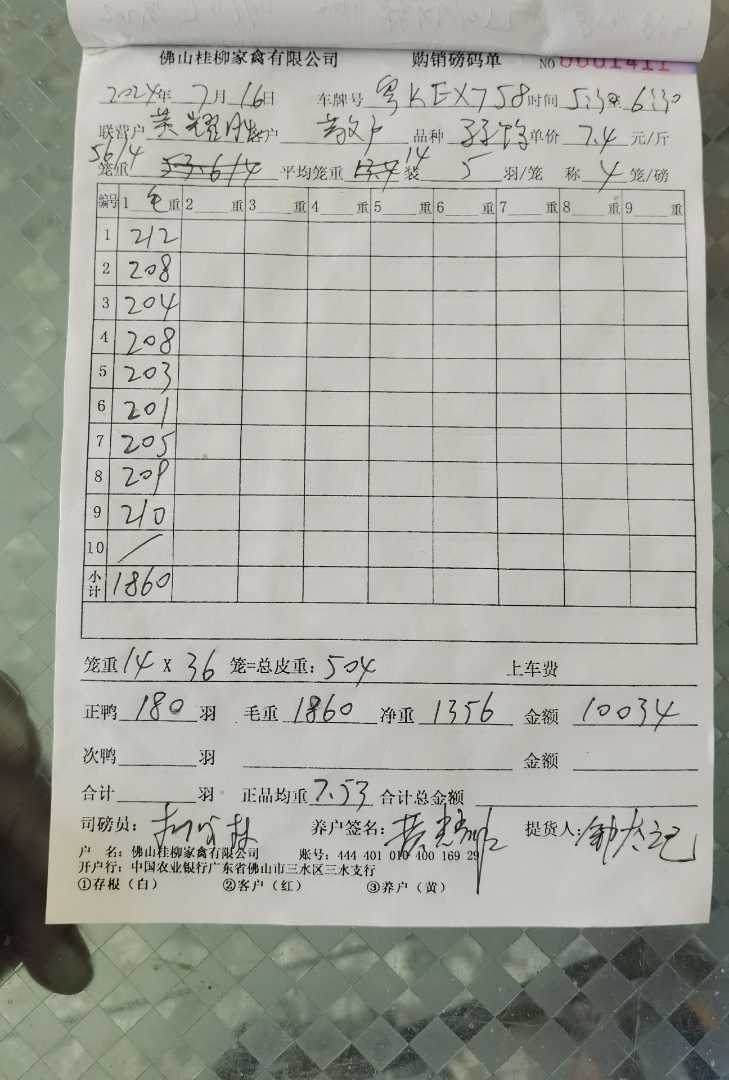 佛山桂柳家禽有限公司 购销磅码单 NO 0001411
2024年 7月 16日 车牌号 粤KEX758 时间 5:30至 6:30
联营户 黄耀胜 客户 散户 品种 单价 7.4 元/斤
笼重 56/4 平均笼重 14 装 5 羽/笼 称 4 笼/磅
编号 1 毛 重 2 重 3 重 4 重 5 重 6 重 7 重 8 重 9 重
1 212
2 208
3 204
4 208
5 203
6 201
7 205
8 209
9 210
10 /
小计 1860
笼重 14 X 36 笼=总皮重: 504 上车费
正鸭 180 羽 毛重 1860 净重 1356 金额 10034
次鸭 羽 金额
合计 羽 正品均重 7.53 合计总金额
司磅员: 养户签名: 提货人:
户 名: 佛山桂柳家禽有限公司 账号: 444 401 010 400 169 29
开户行: 中国农业银行广东省佛山市三水区三水支行
①存根(白) ②客户(红) ③养户(黄)